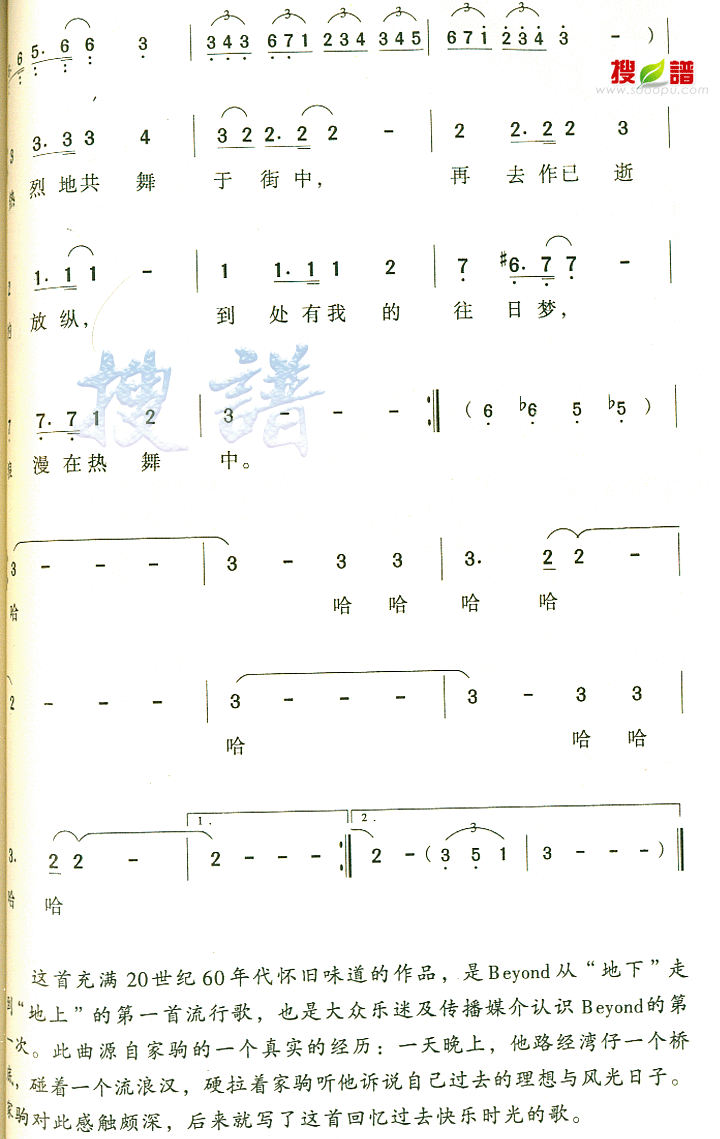 搜谱
www.sooopu.com
6 5. 6 6 3 | 3 4 3 6 7 1 2 3 4 3 4 5 | 6 7 1 2 3 4 3 - ) |
3. 3 3 4 | 3 2 2. 2 2 - | 2 2. 2 2 3 |
烈地共 舞 于 街中, 再 去作已 逝
1. 1 1 - | 1 1. 1 1 2 | 7 #6. 7 7 - |
放纵, 到 处有我 的 往 日梦,
7. 7 1 2 | 3 - - - :| ( 6 b6 5 b5 ) |
漫在热 舞 中。
搜譜
3 - - - | 3 - 3 3 | 3. 2 2 - |
哈 哈 哈 哈 哈
2 - - - | 3 - - - | 3 - 3 3 |
哈 哈 哈
1. 2.
3. 2 2 - | 2 - - - :| 2 - ( 3 5 1 | 3 - - - ) ||
哈 哈
这首充满20世纪60年代怀旧味道的作品，是Beyond从“地下”走
到“地上”的第一首流行歌，也是大众乐迷及传播媒介认识Beyond的第
一次。此曲源自家驹的一个真实的经历：一天晚上，他路经湾仔一个桥
底，碰着一个流浪汉，硬拉着家驹听他诉说自己过去的理想与风光日子。
家驹对此感触颇深，后来就写了这首回忆过去快乐时光的歌。